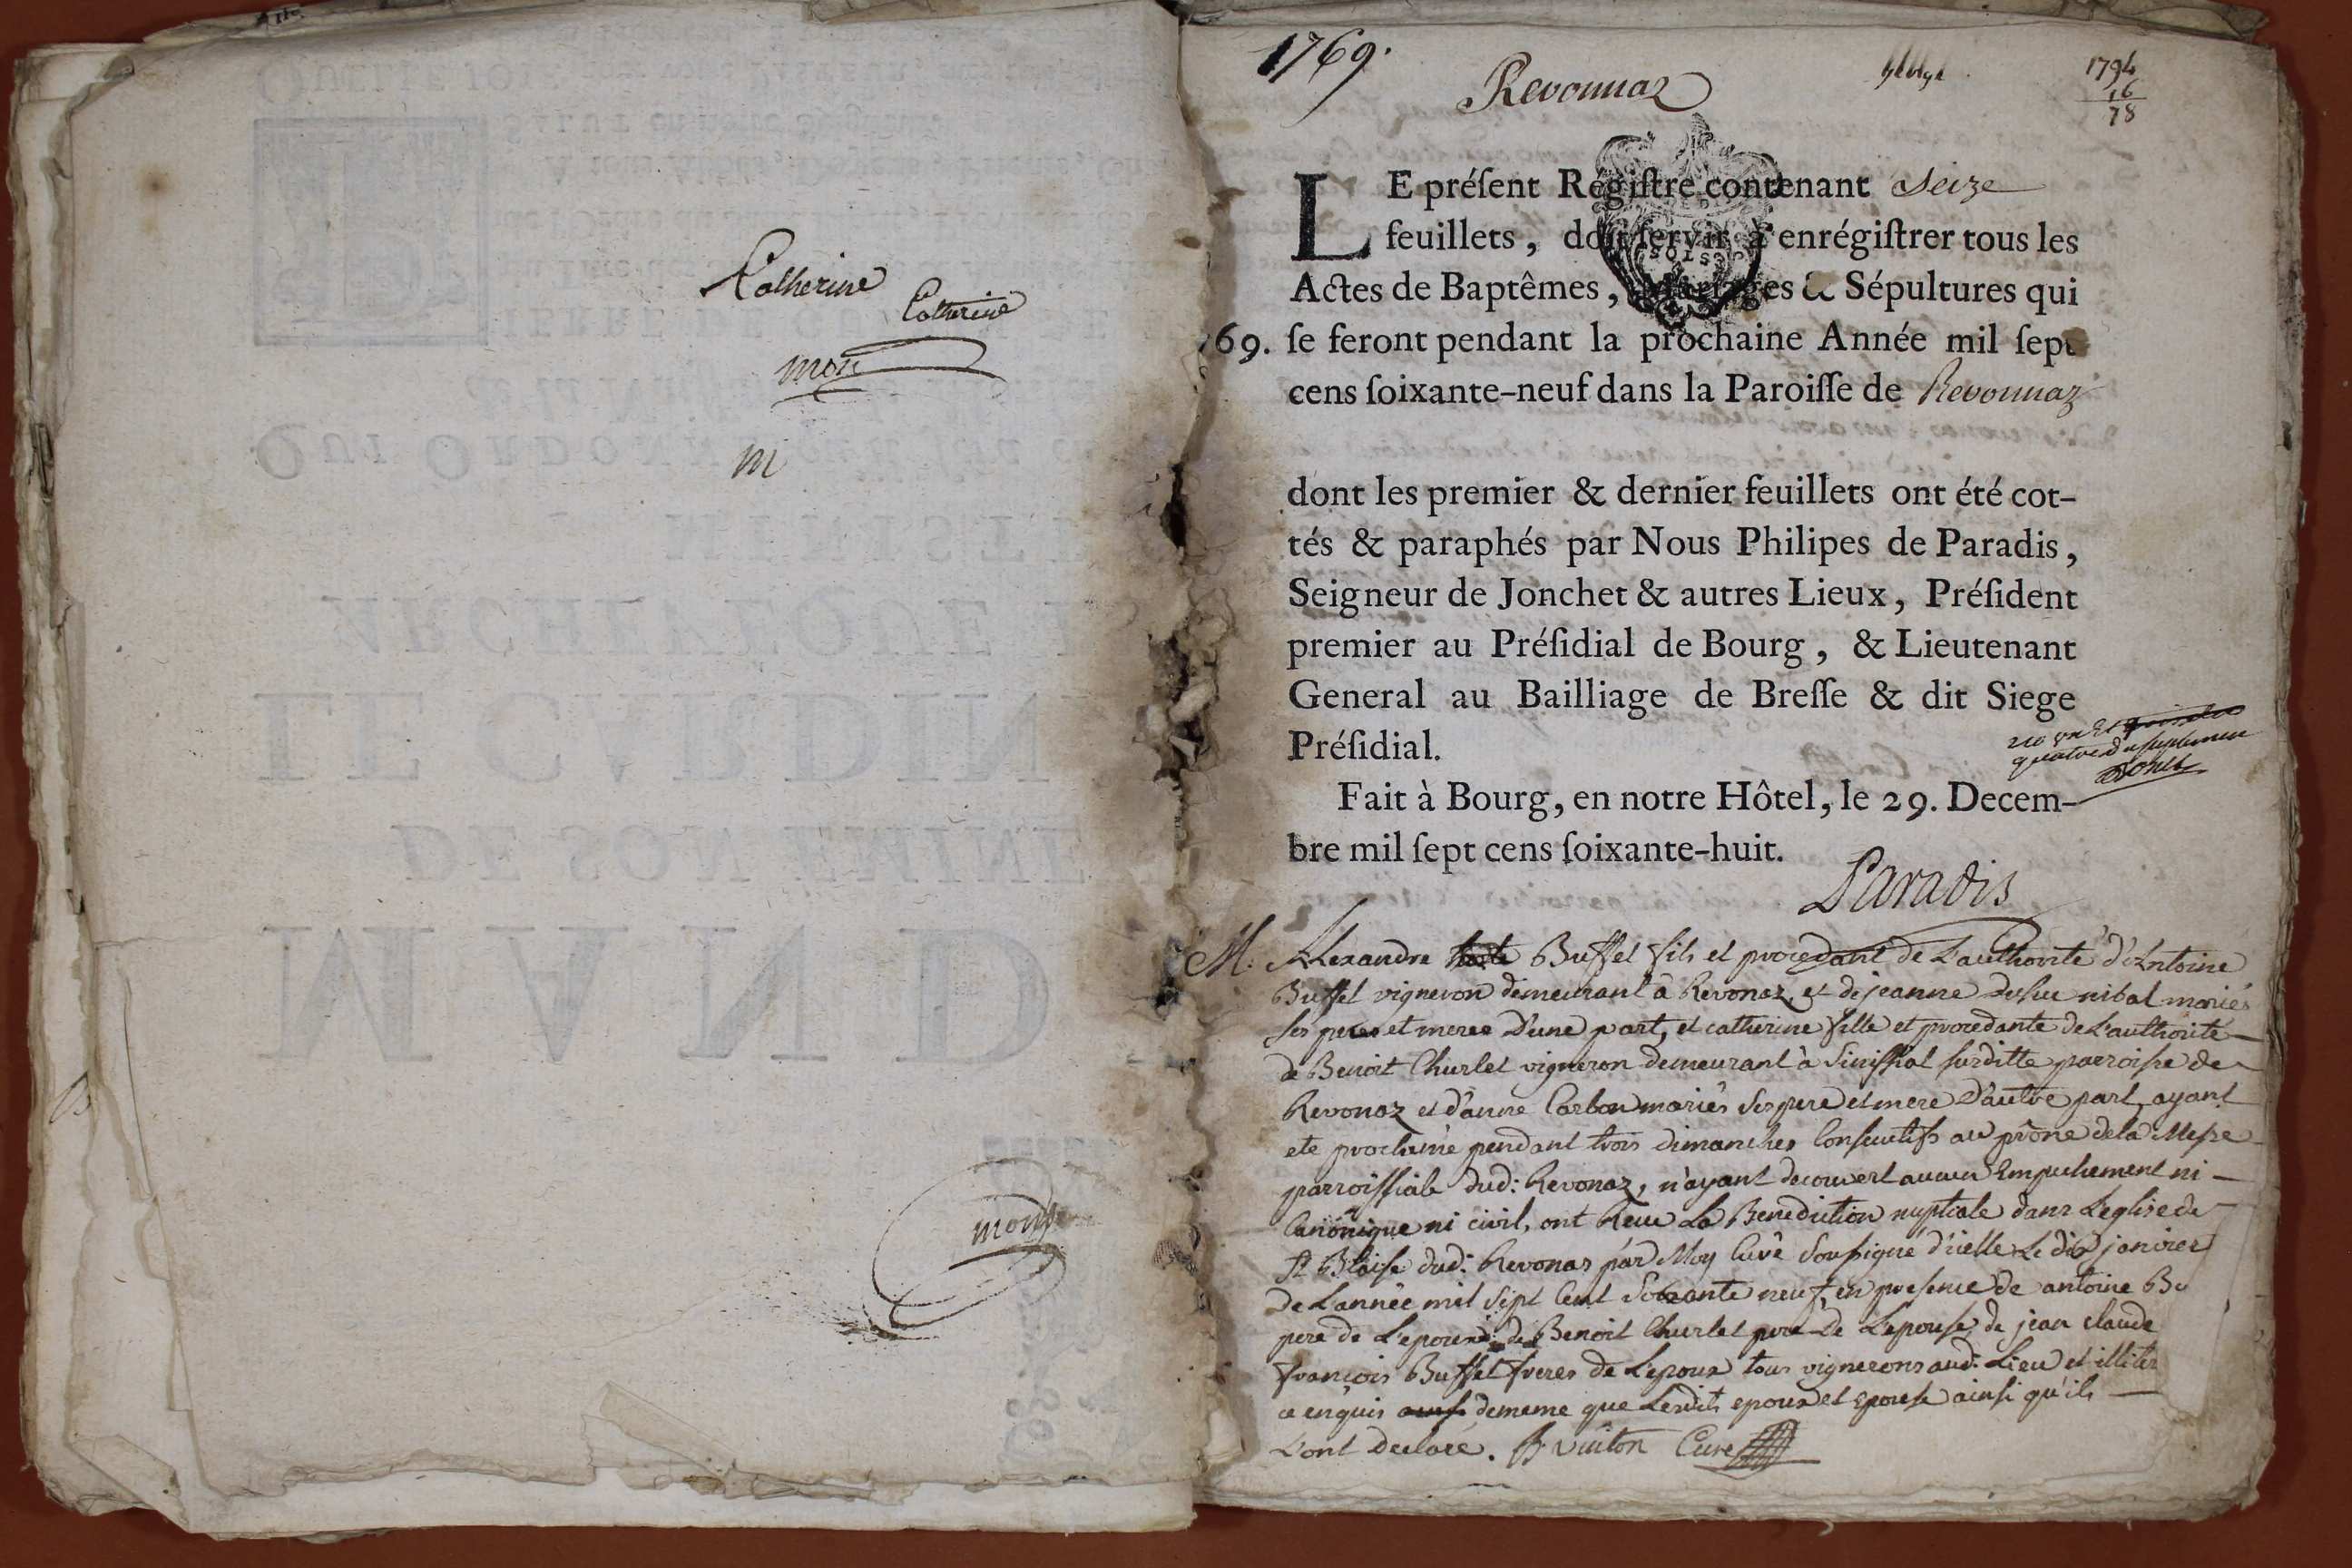 Catherine
Catherine
mon
m
1769.
Revonnaz
1794
16
78
LE préſent Régiſtre contenant Seize
feuillets, doit ſervir à enrégiſtrer tous les
Actes de Baptêmes, Mariages & Sépultures qui
69. ſe feront pendant la prochaine Année mil ſept
cens ſoixante-neuf dans la Paroiſſe de Revonnaz
dont les premier & dernier feuillets ont été cot-
tés & paraphés par Nous Philipes de Paradis,
Seigneur de Jonchet & autres Lieux, Préſident
premier au Préſidial de Bourg, & Lieutenant
General au Bailliage de Breſſe & dit Siege
Préſidial.
Fait à Bourg, en notre Hôtel, le 29. Decem-
bre mil ſept cens ſoixante-huit.
Paradis
M. Alexandre Buffet fils et procedant de L'authorité d'Antoine
Buffet vigneron demeurant à Revonaz, et de jeanne mariés
ses peres et meres D'une part, et catherine fille et procedante de L'authorité
de Benoit Churlet vigneron demeurant à Sinissiat susditte parroisse de
Revonaz et d'anne Carbon mariés ses pere et mere D'autre part, ayant
ete proclamé pendant trois dimanches Consecutifs au prône de la Messe
parroissiale dud: Revonaz, n'ayant decouvert aucun Empechement ni
Canonique ni civil, ont Reçu La Benediction nuptiale dans L'eglise de
St Blaise dud: Revonas par Moy Curé Soussigné d'icelle Le dix janvier
De L'année mil Sept Cent Soixante neuf, en presence de antoine Bu
pere de L'epoux de Benoit Churlet pere de L'epouse, de jean claude
françois Buffet freres de L'epoux tous vignerons aud: Lieu et illiter
ce enquis de meme que Lesdits epoux et Epouse ainsi qu'ils
L'ont Declaré. Vuiton Curé